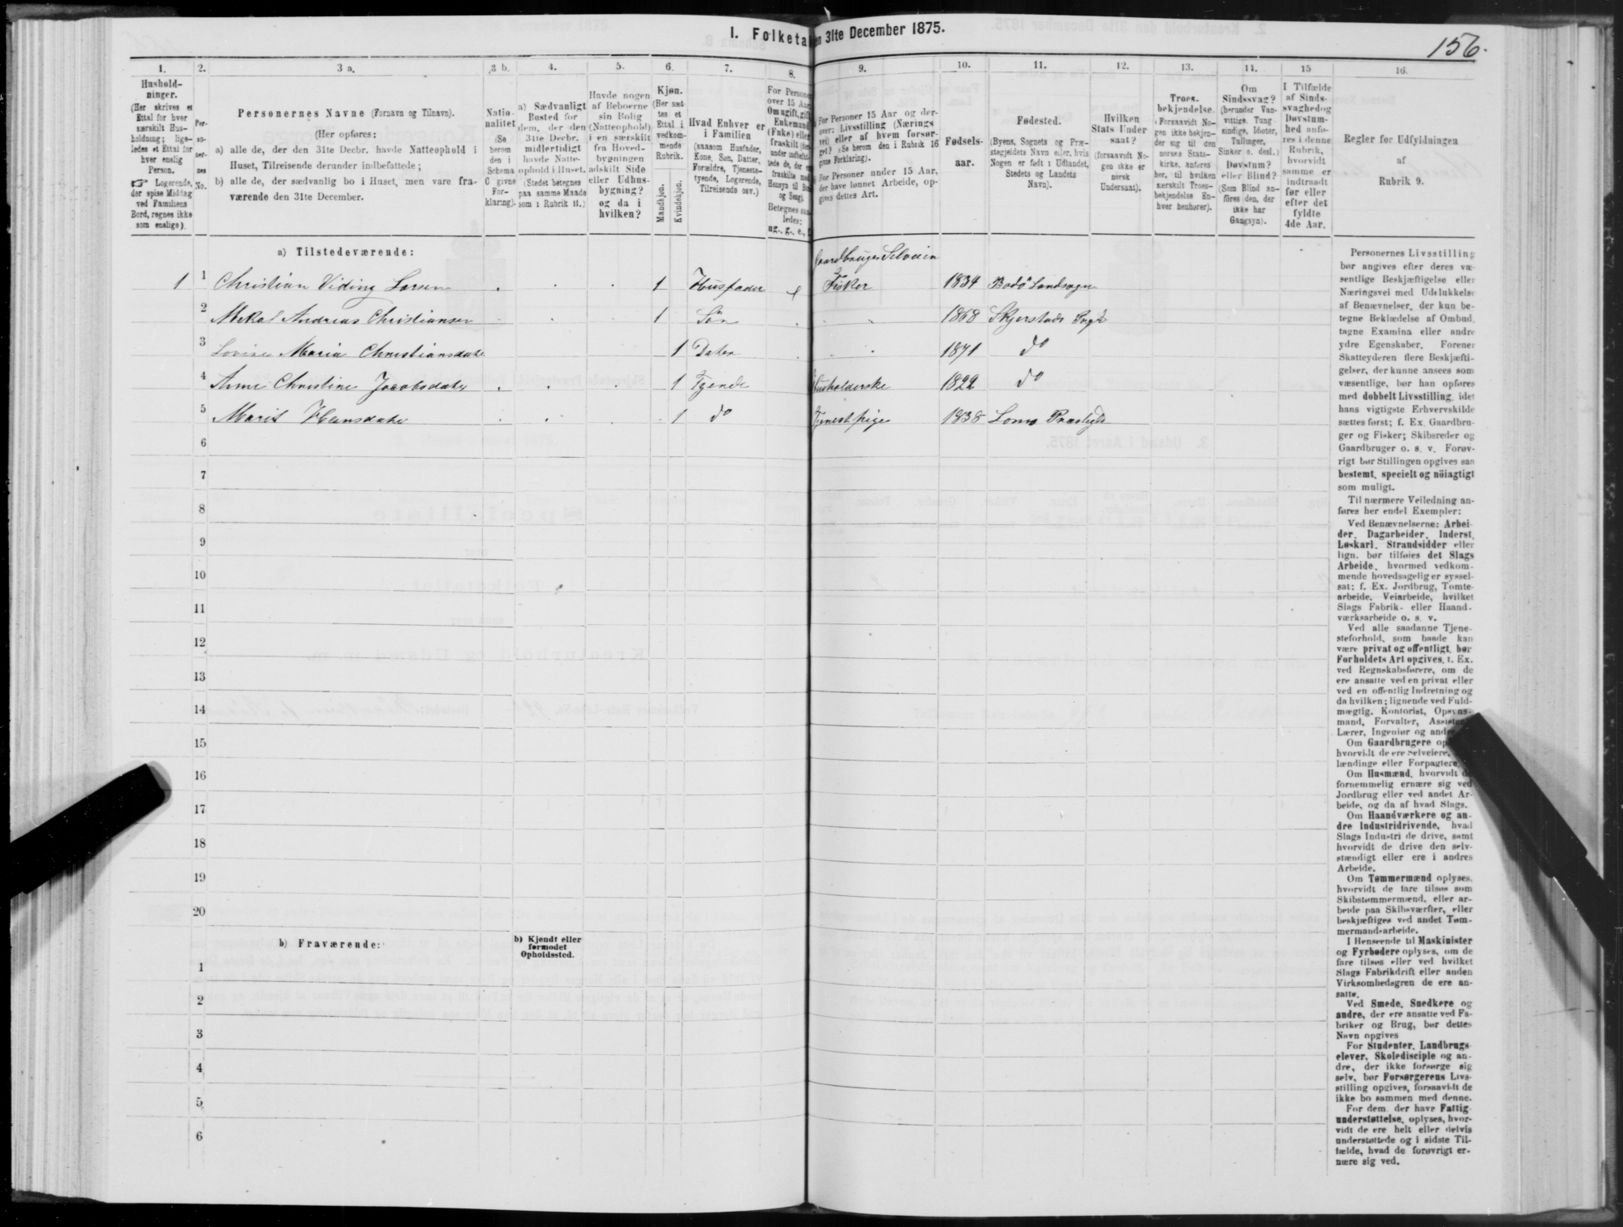 I. Folketa
en 31te December 1875.
156.
1.
2.
3 a.
3 b.
4.
5.
6.
7.
8.
9.
10.
11.
12.
13.
14.
15
16.
Hushold-
ninger.
(Her skrives et
Ettal for hver
særskilt Hus-
holdning; lige-
ledes et Ettal for
hver enslig
Person.
☞ Logerende,
der spise Middag
ved Familiens
Bord, regnes ikke
som enslige).
Per-
so-
ner-
nes
No.
Personernes Navne (Fornavn og Tilnavn).
(Her opføres:
a) alle de, der den 31te Decbr. havde Natteophold i
Huset, Tilreisende derunder indbefattede;
b) alle de, der sædvanlig bo i Huset, men vare fra-
værende den 31te December.
Natio-
nalitet
(Se
herom
den i
Schema
C givne
For-
klaring).
a) Sædvanligt
Bosted for
dem, der den
31te Decbr.
midlertidigt
havde Natte-
ophold i Huset.
(Stedet betegnes
paa samme Maade
som i Rubrik 11.)
Havde nogen
af Beboerne
sin Bolig
(Natteophold)
i en særskilt
fra Hoved-
bygningen
adskilt Side
eller Udhus-
bygning?
og da i
hvilken?
Kjøn.
(Her sæt-
tes et
Ettal i
vedkom-
mende
Rubrik.
Mandkjøn.
Kvindekjøn.
Hvad Enhver er
i Familien
(saasom Husfader,
Kone, Søn, Datter,
Forældre, Tjeneste-
tyende, Logerende,
Tilreisende osv.)
For Personer
over 15 Aar
Om ugift, gift,
Enkemand
(Enke) eller
fraskilt
Betegnes saa-
ledes:
ug., g., e., f.
For Personer 15 Aar og der-
over: Livsstilling (Nærings
vei) eller af hvem forsør-
get) (Se herom den i Rubrik 16
givne Forklaring).
For Personer under 15 Aar,
der have lønnet Arbeide, op-
gives dettes Art.
Fødsels-
aar.
Fødested.
(Byens, Sognets og Præ-
stegjeldets Navn eller, hvis
Nogen er født i Udlandet,
Stedets og Landets
Navn).
Hvilken
Stats Under
saat?
(forsaavidt No-
gen ikke er
norsk
Undersaat).
Troes-
bekjendelse.
(Forsaavidt No-
gen ikke bekjen-
der sig til den
norske Stats-
kirke, anføres
her, til hvilken
særskilt Troes-
bekjendelse En-
hver henhører).
Om
Sindssvag?
(herunder Van-
vittige, Tung
sindige, Idioter,
Tullinger,
Sinker o. desl.)
Døvstum?
eller Blind?
(Som Blind an-
føres den, der
ikke har
Gangsyn).
I Tilfælde
af Sinds-
svaghed og
Døvstum-
hed anfø-
res i denne
Rubrik,
hvorvidt
samme er
indtraadt
før eller
efter det
fyldte
4de Aar.
Regler for Udfyldningen
af
Rubrik 9.
a) Tilstedeværende:
Gaardbruger Selveier
1 1 Christian Viding Larsen 1 Husfader e Fisker 1834 Bodø Landsogn
2 Mekal Andreas Christiansen 1 Søn 1868 Skjerstads Prgld
3 Lovise Maria Christiansdatr 1 Datter 1871 do
4 Anne Christine Jacobsdatr 1 Tyende Husholderske 1822 do
5 Marit Hansdatr 1 do Tjenestpige 1838 Loms Præstgld
6
7
8
9
10
11
12
13
14
15
16
17
18
19
20
b) Fraværende:
b) Kjendt eller
formodet
Opholdssted.
1
2
3
4
5
6
Personernes Livsstilling
bør angives efter deres væ-
sentlige Beskjæftigelse eller
Næringsvei med Udelukkelse
af Benævnelser, der kun be-
tegne Beklædelse af Ombud,
tagne Examina eller andre
ydre Egenskaber. Forener
Skatteyderen flere Beskjæfti-
gelser, der kunne ansees som
væsentlige, bør han opføres
med dobbelt Livsstilling, idet
hans vigtigste Erhvervskilde
sættes først; f. Ex. Gaardbru-
ger og Fisker; Skibsreder og
Gaardbruger o. s. v. Forøv-
rigt bør Stillingen opgives saa
bestemt, specielt og nöiagtigt
som muligt.
Til nærmere Veiledning an-
føres her endel Exempler:
Ved Benævnelserne: Arbei-
der, Dagarbeider, Inderst,
Løskarl, Strandsidder eller
lign. bør tilføies det Slags
Arbeide, hvormed vedkom-
mende hovedsagelig er syssel-
sat; f. Ex. Jordbrug, Tomte-
arbeide, Veiarbeide, hvilket
Slags Fabrik- eller Haand-
værksarbeide o. s. v.
Ved alle saadanne Tjene-
steforhold, som baade kan
være privat og offentligt, bør
Forholdets Art opgives, f. Ex.
ved Regnskabsførere, om de
ere ansatte ved en privat eller
ved en offentlig Indretning og
da hvilken; lignende ved Fuld-
mægtig, Kontorist, Opsyns-
mand, Forvalter, Assistent,
Lærer, Ingeniør og andre.
Om Gaardbrugere
hvorvidt de ere Selveiere,
lændinge eller Forpagtere.
Om Husmænd, hvorvidt de
fornemmelig ernære sig ved
Jordbrug eller ved andet Ar-
beide, og da af hvad Slags.
Om Haandværkere og an-
dre Industridrivende, hvad
Slags Industri de drive, samt
hvorvidt de drive den selv-
stændigt eller ere i andres
Arbeide.
Om Tømmermænd oplyses,
hvorvidt de fare tilsøs som
Skibstømmermænd, eller ar-
beide paa Skibsværfter, eller
beskjæftiges ved andet Tøm-
mermandsarbeide.
I Henseende til Maskinister
og Fyrbødere oplyses, om de
fare tilsøs eller ved hvilket
Slags Fabrikdrift eller anden
Virksomhedsgren de ere an-
satte.
Ved Smede, Snedkere og
andre, der ere ansatte ved Fa-
briker og Brug, bør dettes
Navn opgives
For Studenter, Landbrugs
elever, Skoledisciple og an-
dre, der ikke forsørge sig
selv, bør Forsørgerens Livs-
stilling opgives, forsaavidt de
ikke bo sammen med denne.
For dem, der have Fattig
understøttelse, oplyses, hvor-
vidt de ere helt eller delvis
understøttede og i sidste Til-
fælde, hvad de forøvrigt er-
nære sig ved.